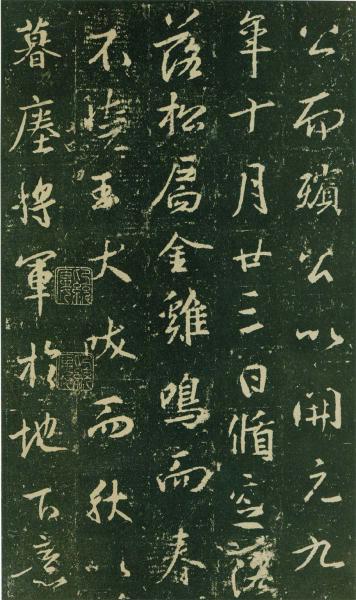 公而殯公以開元九
年十月廿三日循窆
落松扃金雞鳴而春
不曉玉大吠而秋以
暮塵將軍於地下意